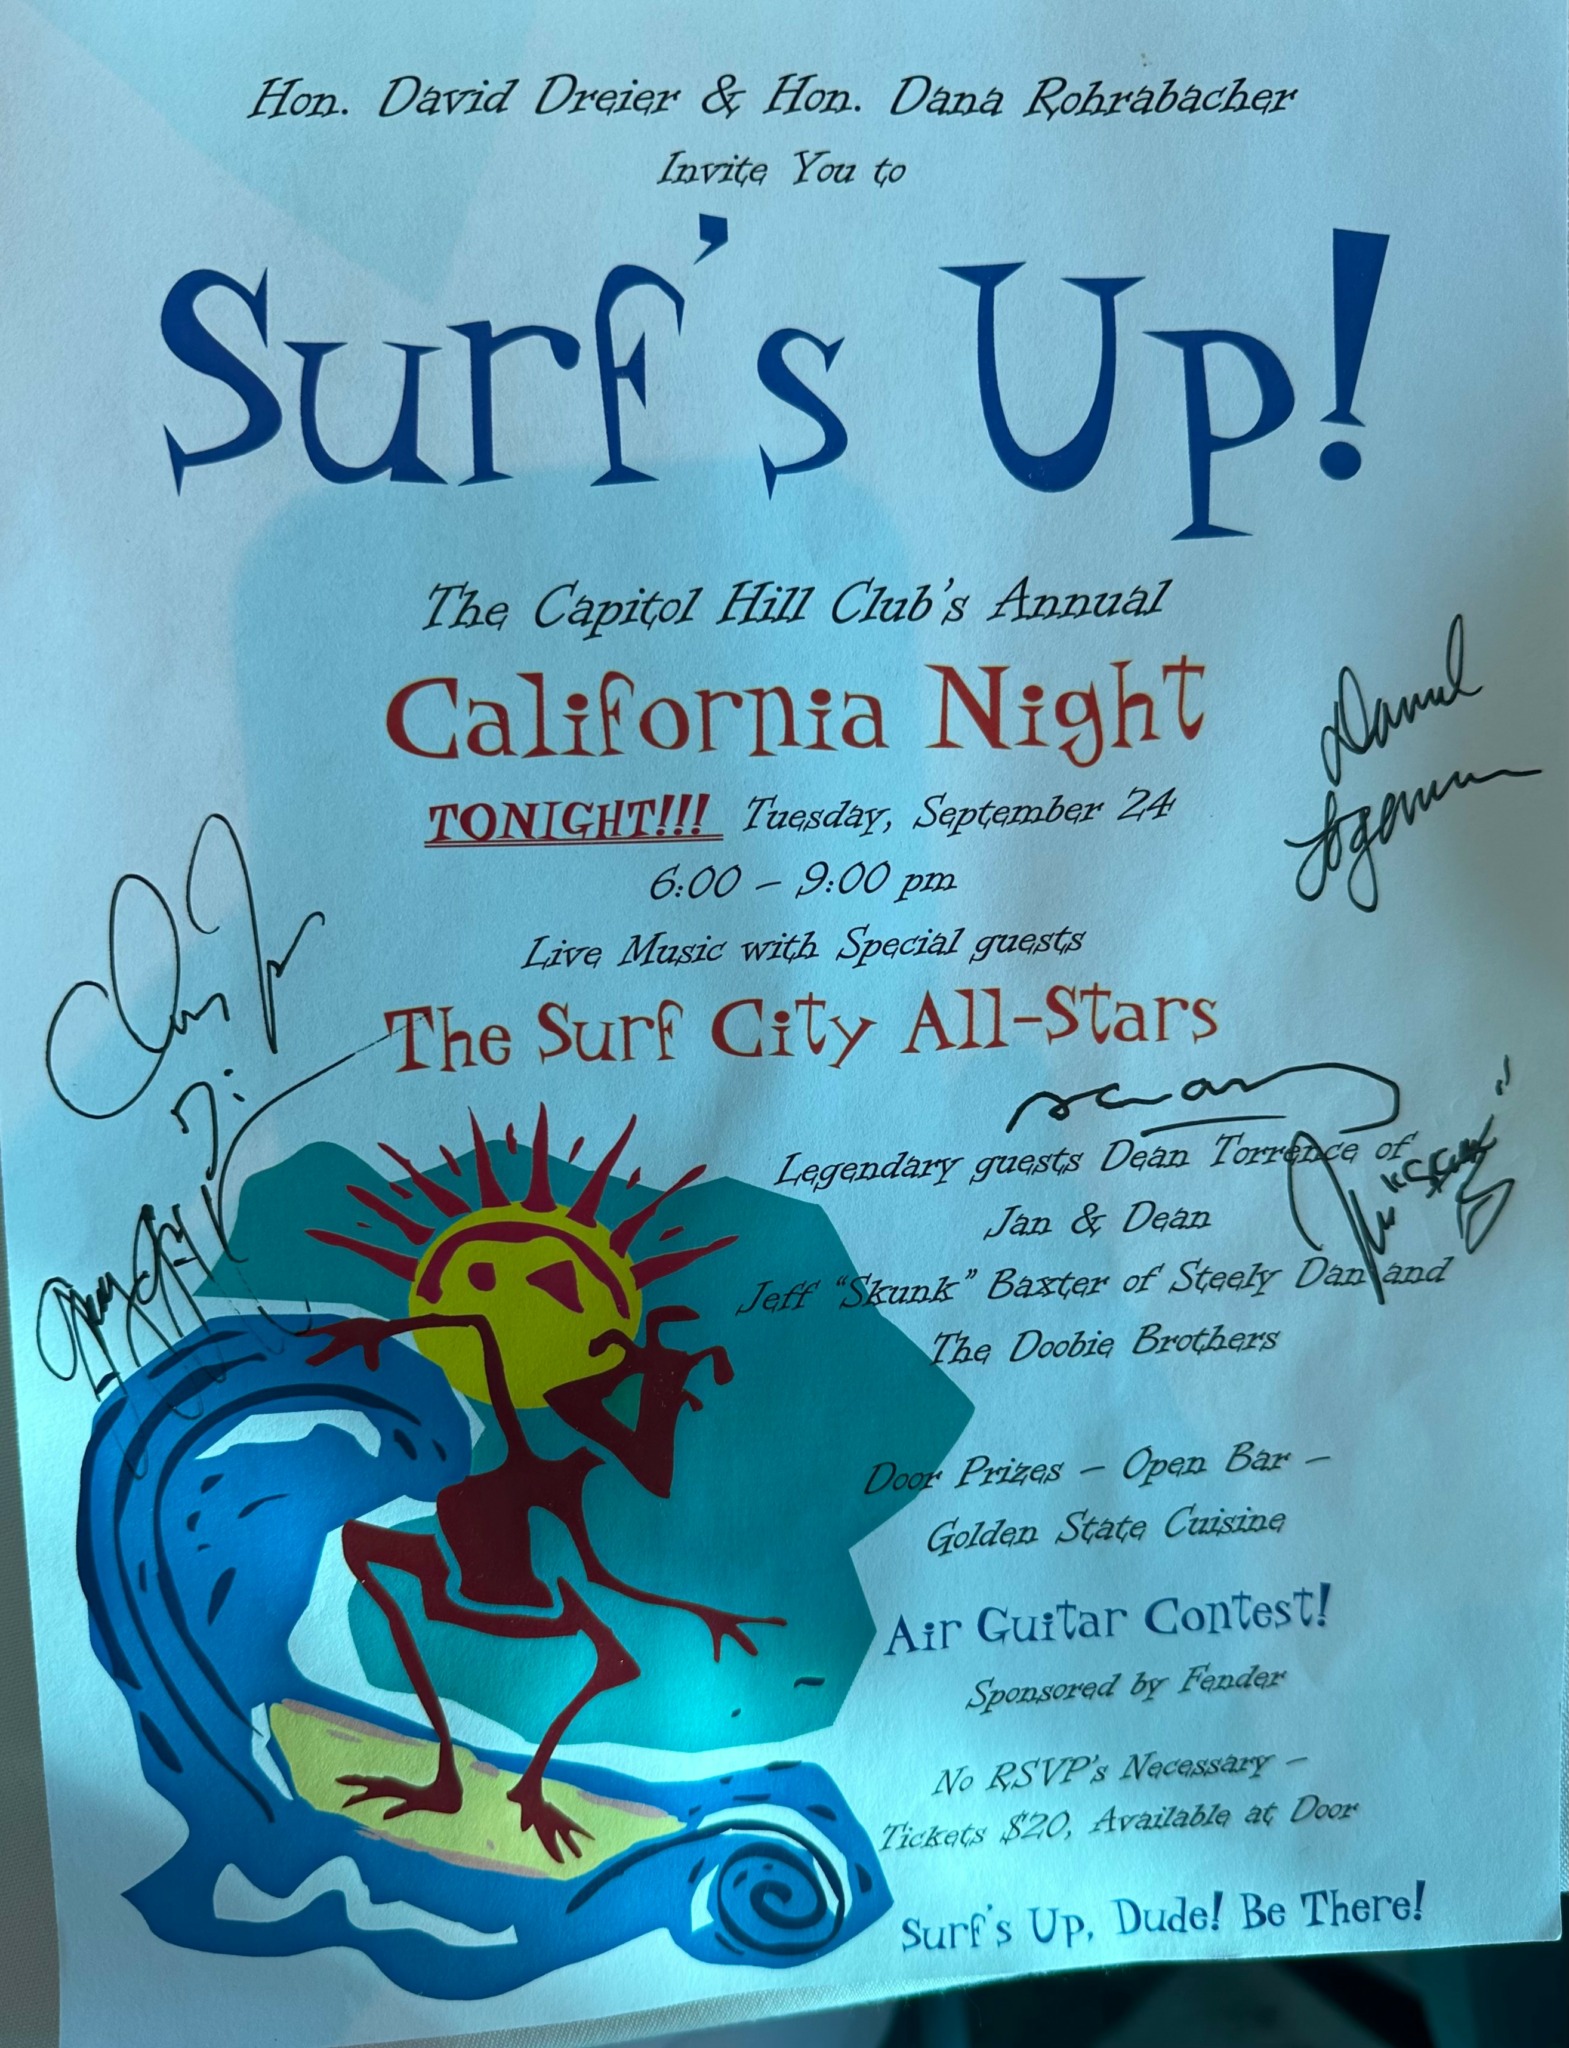 Hon. David Dreier & Hon. Dana Rohrabacher
Invite You to
Surf's Up!
The Capitol Hill Club's Annual
California Night
TONIGHT!!! Tuesday, September 24
6:00 – 9:00 pm
Live Music with Special guests
The Surf City All-Stars
Legendary guests Dean Torrence of
Jan & Dean
Jeff “Skunk” Baxter of Steely Dan and
The Doobie Brothers
Door Prizes – Open Bar –
Golden State Cuisine
Air Guitar Contest!
Sponsored by Fender
No RSVP's Necessary –
Tickets $20, Available at Door
Surf's Up, Dude! Be There!